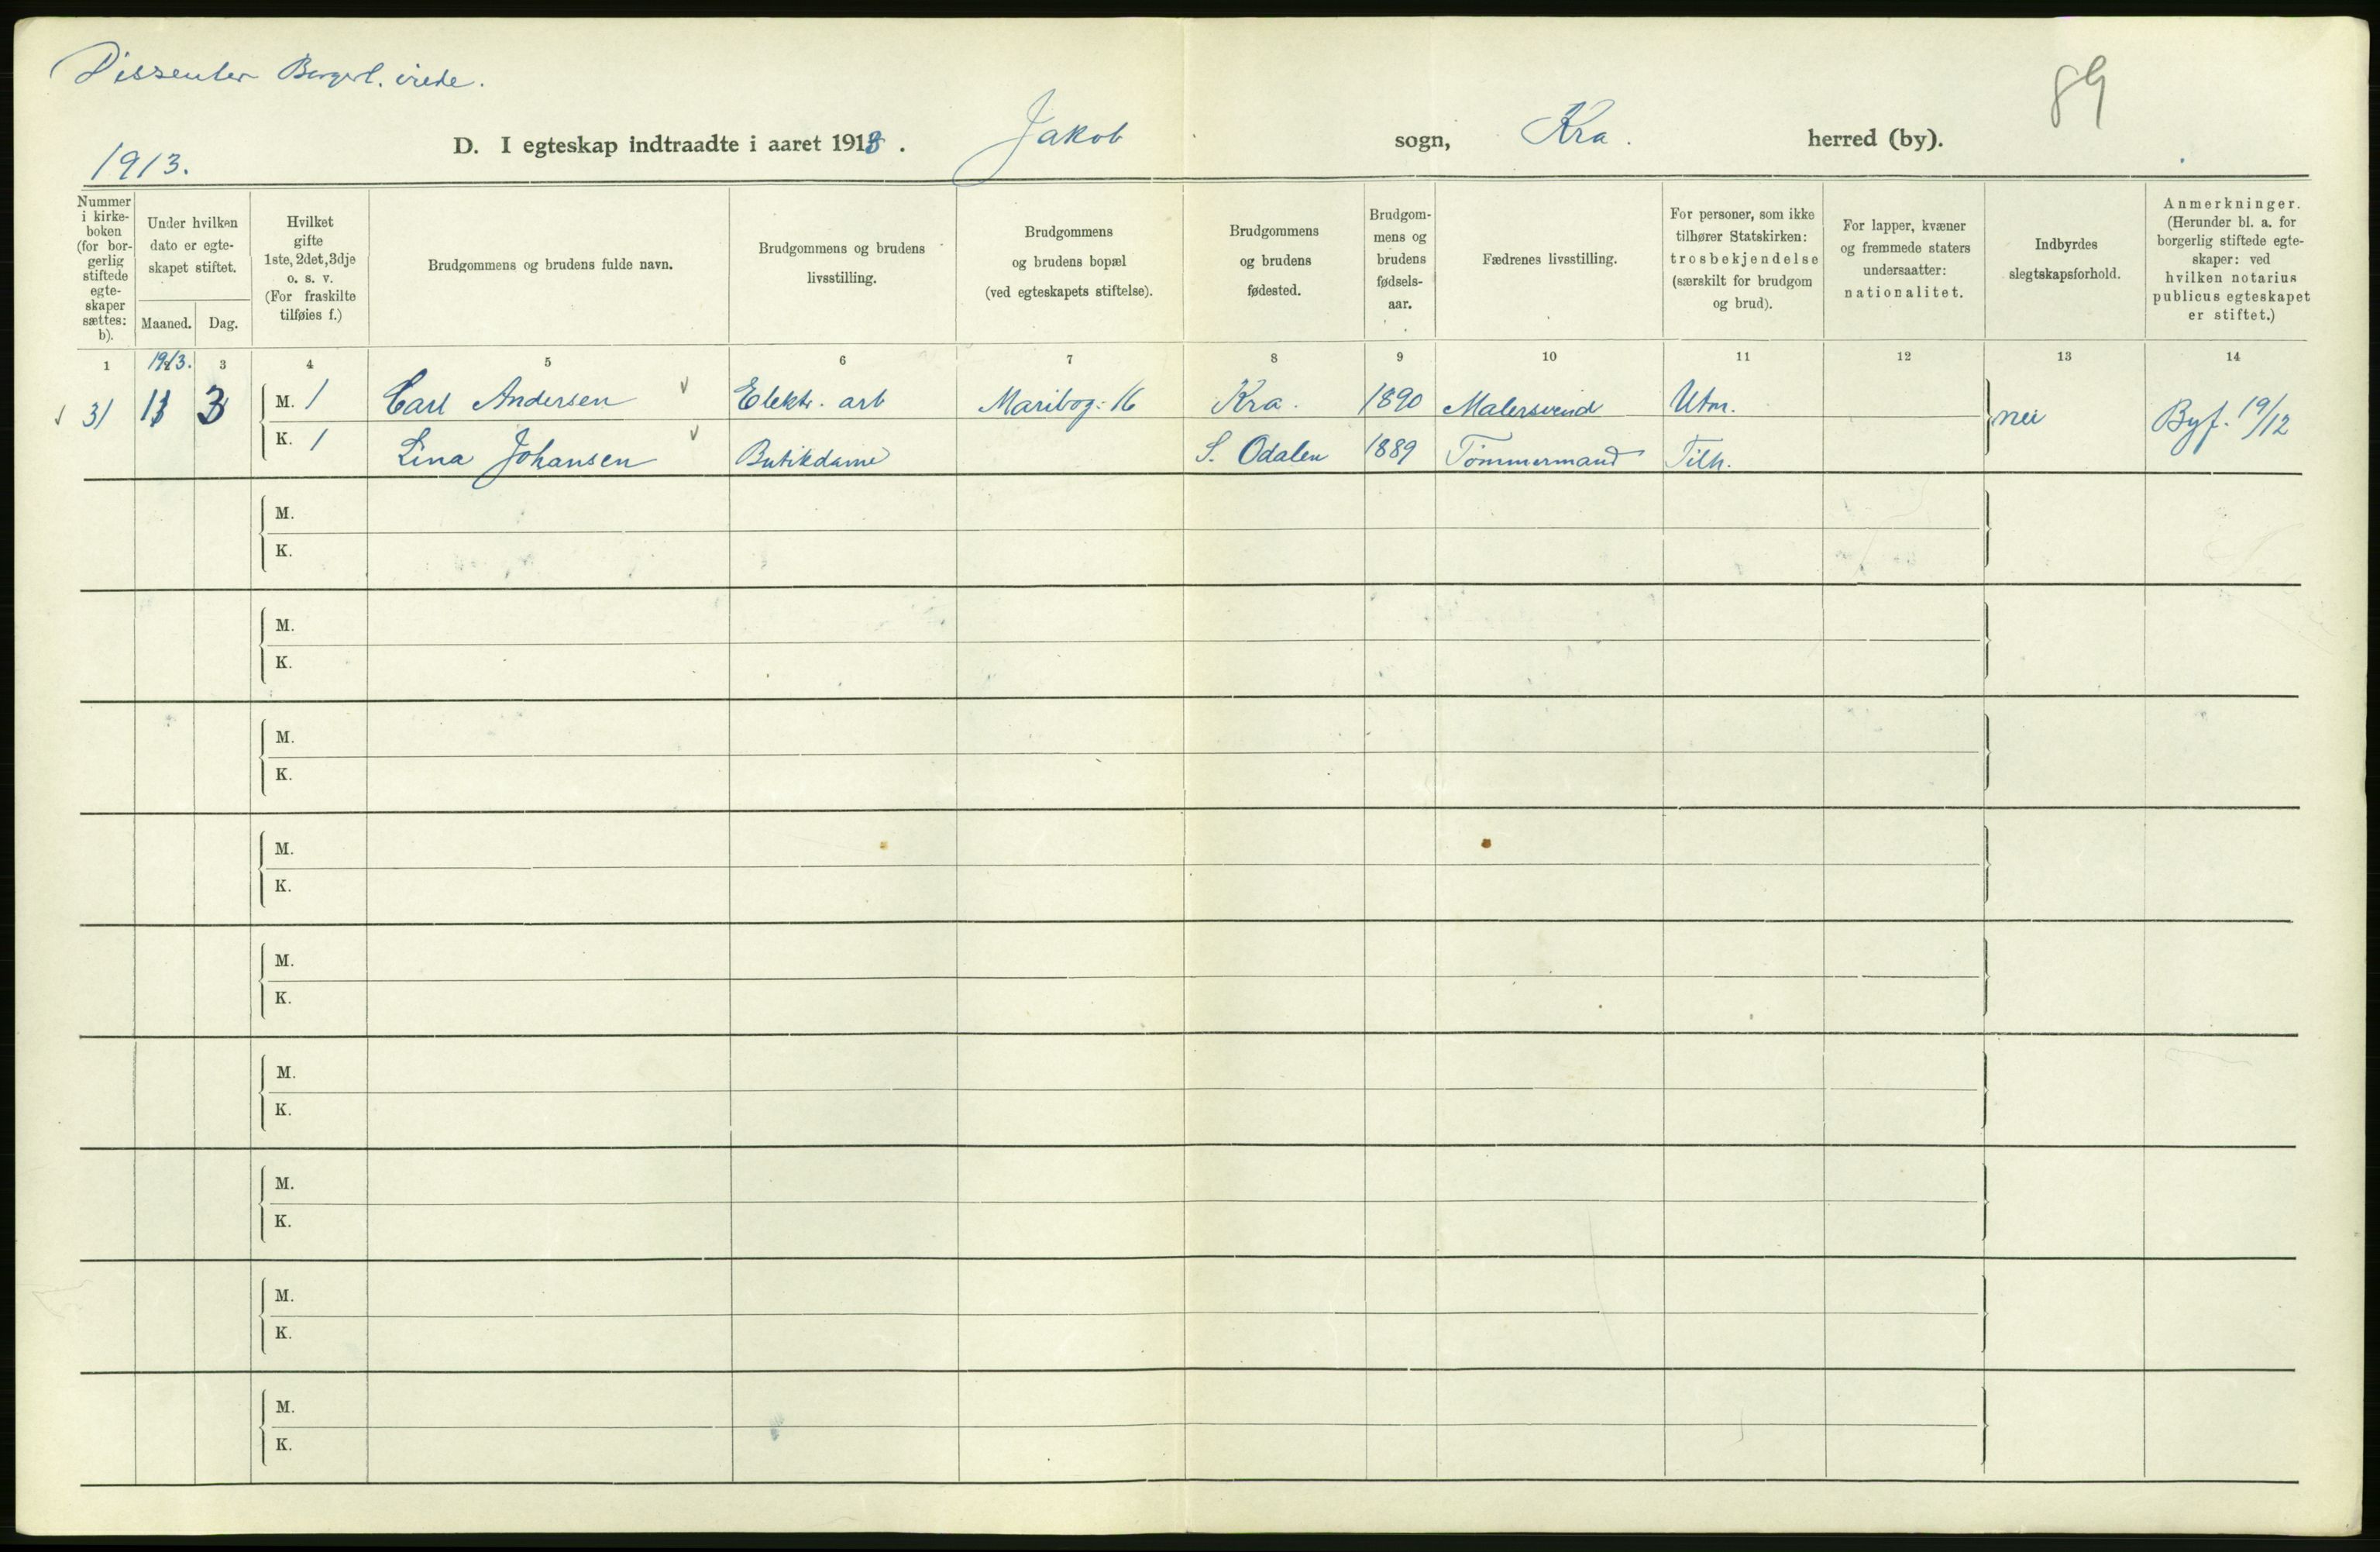 Dissenter Borgerl. viede.
89
1913.
D. I egteskap indtraadte i aaret 1913. Jakob sogn, Kra. herred (by).
Nummer i kirke- boken (for bor- gerlig stiftede egte- skaper sættes: b).
Under hvilken dato er egte- skapet stiftet.
Maaned. Dag.
Hvilket gifte 1ste, 2det, 3dje o. s. v. (For fraskilte tilføies f.)
Brudgommens og brudens fulde navn.
Brudgommens og brudens livsstilling.
Brudgommens og brudens bopæl (ved egteskapets stiftelse).
Brudgommens og brudens fødested.
Brudgom- mens og brudens fødsels- aar.
Fædrenes livsstilling.
For personer, som ikke tilhører Statskirken: trosbekjendelse (særskilt for brudgom og brud).
For lapper, kvæner og fremmede staters undersaatter: nationalitet.
Indbyrdes slegtskapsforhold.
Anmerkninger. (Herunder bl. a. for borgerlig stiftede egte- skaper: ved hvilken notarius publicus egteskapet er stiftet.)
1 1913. 3 4 5 6 7 8 9 10 11 12 13 14
31 3 M. 1 Carl Andersen Elektr. arb Maribog. 16 Kra. 1890 Malersvend Utm. nei Byf. 19/12
K. 1 Lina Johansen Butikdame S. Odalen 1889 Tømmermand Tilh.
M.
K.
M.
K.
M.
K.
M.
K.
M.
K.
M.
K.
M.
K.
M.
K.
M.
K.